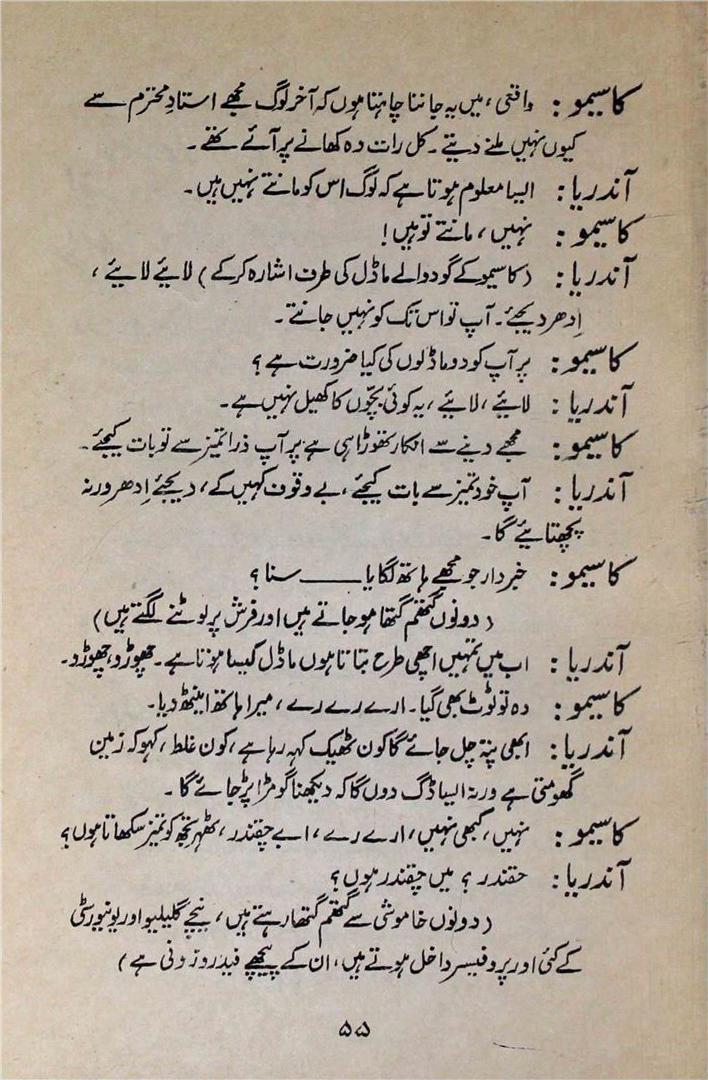 کاسیمو: واقعی، میں یہ جاننا چاہتا ہوں کہ آخر لوگ مجھے استادِ محترم سے
کیوں نہیں ملنے دیتے۔ کل رات وہ کھانے پر آئے تھے۔
آندریا: ایسا معلوم ہوتا ہے کہ لوگ اس کو مانتے نہیں ہیں۔
کاسیمو: نہیں، مانتے تو ہیں!
آندریا: (کاسیمو کے گود والے ماڈل کی طرف اشارہ کرکے) لائیے لائیے،
اِدھر دیجئے۔ آپ تو اس تک کو نہیں جانتے۔
کاسیمو: پر آپ کو دو ماڈلوں کی کیا ضرورت ہے؟
آندریا: لائیے، لائیے، یہ کوئی بچّوں کا کھیل نہیں ہے۔
کاسیمو: مجھے دینے سے انکار تھوڑا ہی ہے پر آپ ذرا تمیز سے تو بات کیجئے۔
آندریا: آپ خود تمیز سے بات کیجئے، بے وقوف کہیں کے، دیجئے اِدھر ورنہ
پچھتائیے گا۔
کاسیمو: خبردار جو مجھے ہاتھ لگایا ــــــ سنا؟
(دونوں گتھم گتھا ہوجاتے ہیں اور فرش پر لوٹنے لگتے ہیں)
آندریا: اب میں تمہیں اچھی طرح بتاتا ہوں ماڈل کیسا ہوتا ہے۔ چھوڑو، چھوڑو۔
کاسیمو: وہ تو ٹوٹ بھی گیا۔ ارے رے رے، میرا ہاتھ اینٹھ دیا۔
آندریا: ابھی پتہ چل جائے گا کون ٹھیک کہہ رہا ہے، کون غلط، کہو کہ زمین
گھومتی ہے ورنہ ایسا ڈگ دوں گا کہ دیکھنا گومڑا پڑ جائے گا۔
کاسیمو: نہیں، کبھی نہیں، ارے رے، ابے چقندر، ٹھہر تجھ کو تمیز سکھاتا ہوں؟
آندریا: حقندر؟ میں چقندر ہوں؟
(دونوں خاموشی سے گتھم گتھا رہتے ہیں، نیچے گلیلیو اور یونیورسٹی
کے کئی اور پروفیسر داخل ہوتے ہیں، ان کے پیچھے فیدروژونی ہے)
۵۵